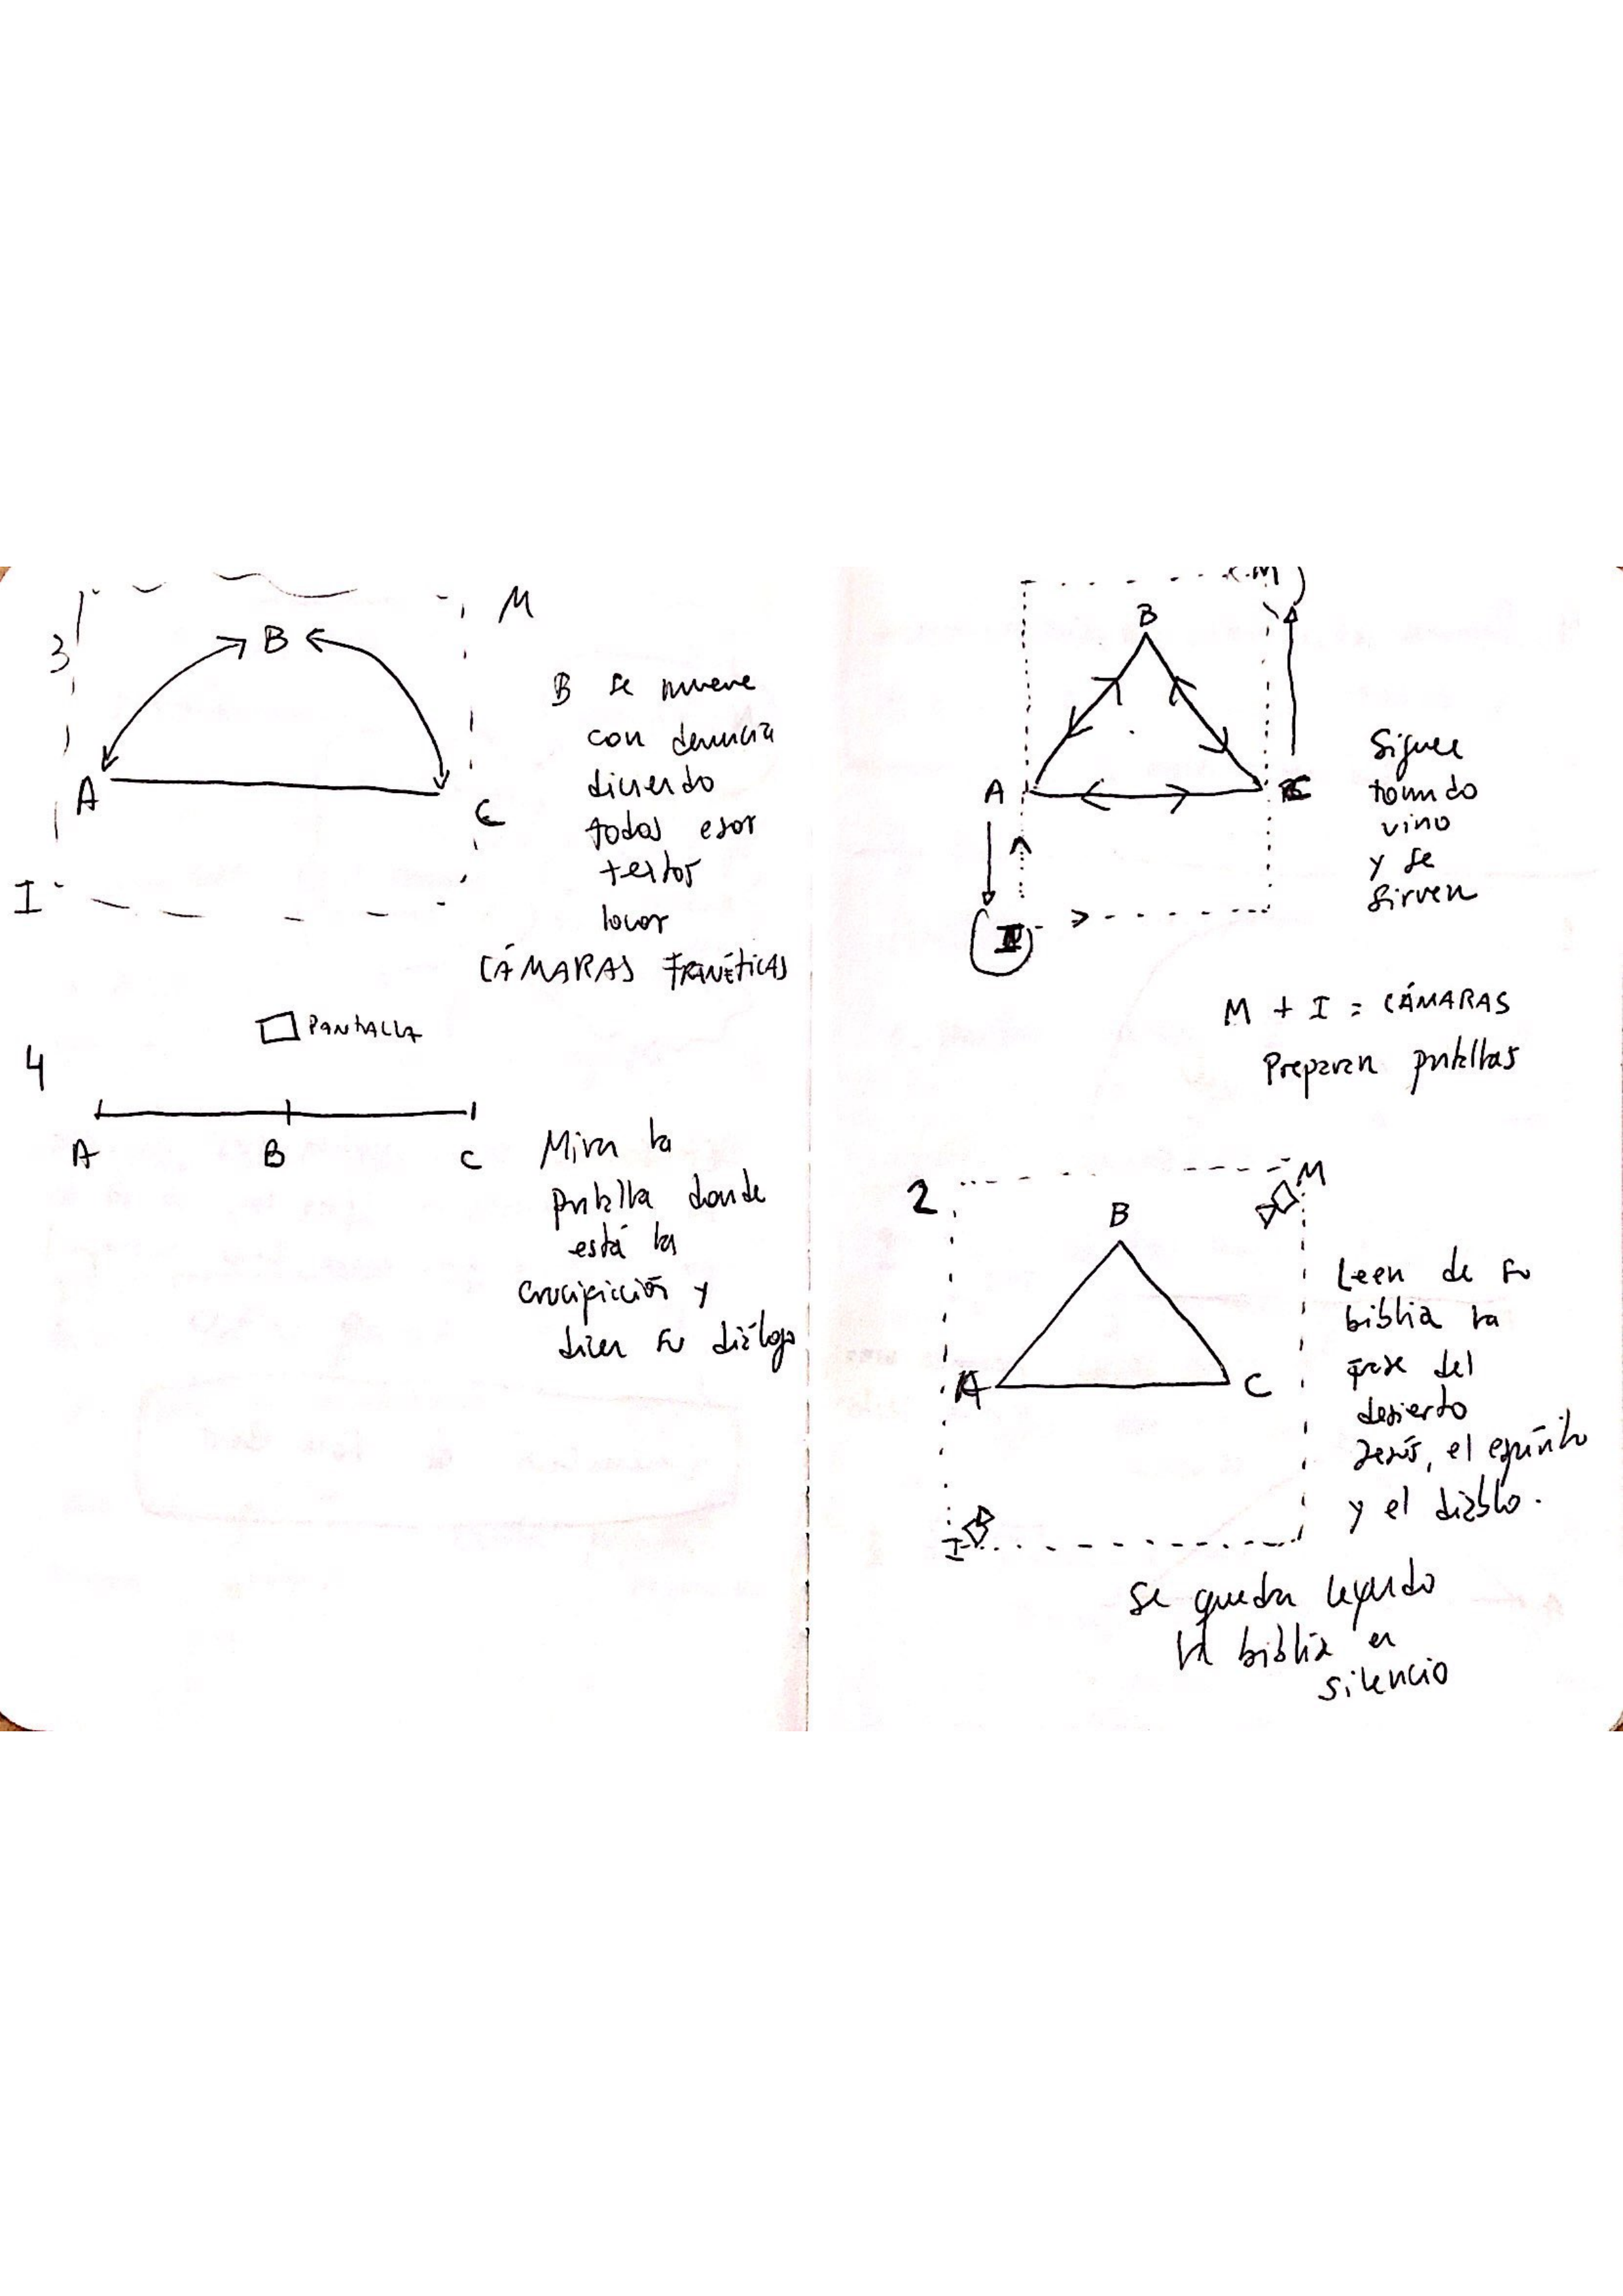 3
M
B
A
C
I
B se mueve
con demencia
diciendo
todos esos
textos
locos
CÁMARAS FRENÉTICAS
PANTALLA
4
A B C
Miran la
pantalla donde
está la
crucifixión y
dicen su diálogo
M
B
A
C
Siguen
tomando
vino
y se
sirven
M + I = CÁMARAS
Preparan pantallas
2
M
B
A
C
I
Leen de su
biblia la
frase del
desierto
Jesús, el espíritu
y el diablo.
Se quedan leyendo
la biblia en
silencio